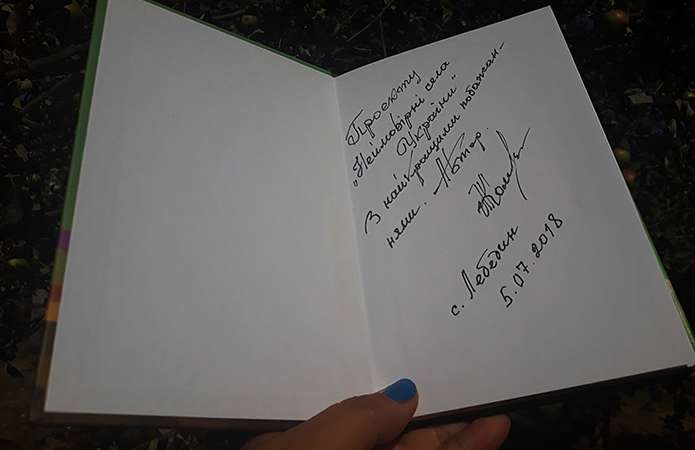 Проекту
„Неймовірні села
України"
З найкращими побажан-
нями. Автор.
с. Лебедин
5.07.2018